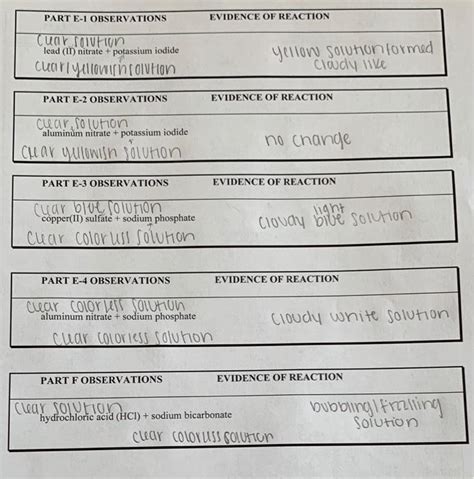 PART E-1 OBSERVATIONS EVIDENCE OF REACTION
clear solution
lead (II) nitrate + potassium iodide
clear/yellowish solution
yellow solution formed
cloudy like
PART E-2 OBSERVATIONS EVIDENCE OF REACTION
clear solution
aluminum nitrate + potassium iodide
clear yellowish solution
no change
PART E-3 OBSERVATIONS EVIDENCE OF REACTION
clear blue solution
copper(II) sulfate + sodium phosphate
clear colorless solution
light
cloudy blue solution
PART E-4 OBSERVATIONS EVIDENCE OF REACTION
clear colorless solution
aluminum nitrate + sodium phosphate
clear colorless solution
cloudy white solution
PART F OBSERVATIONS EVIDENCE OF REACTION
clear solution
hydrochloric acid (HCl) + sodium bicarbonate
clear colorless solution
bubbling/frizzling
solution